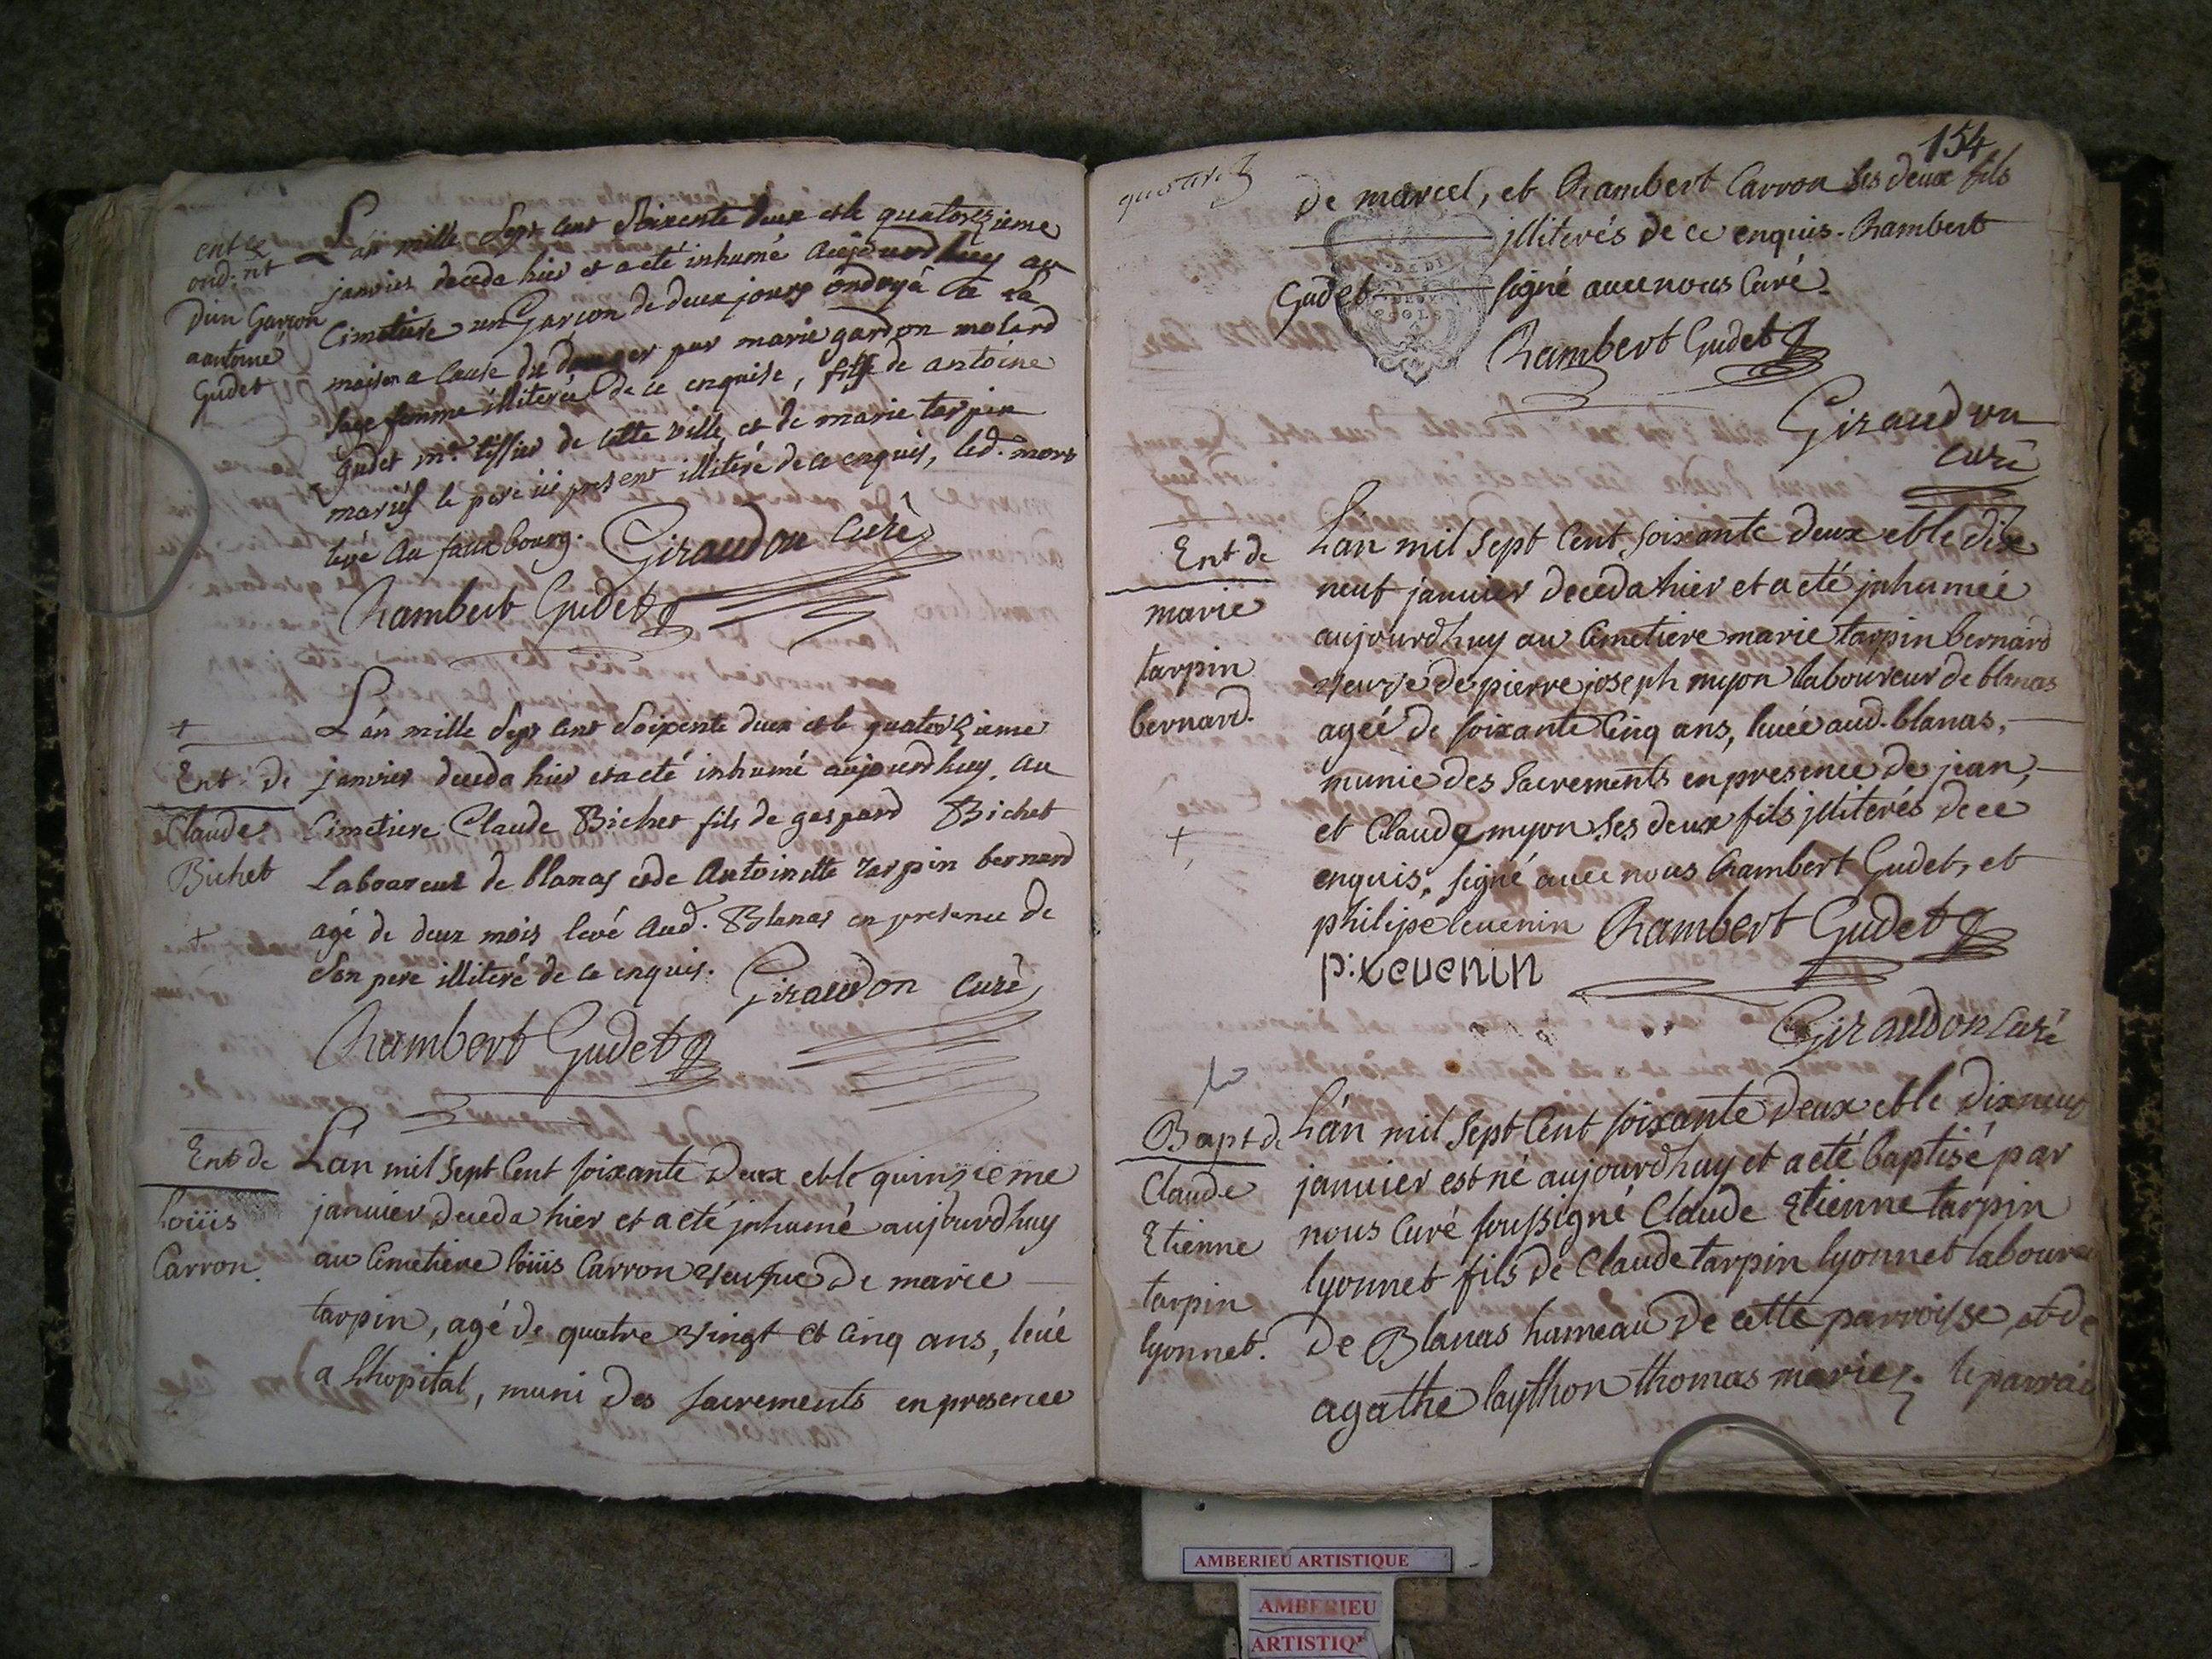 ent &
ond.nt
d'un Garçon
a antoine
Gudet
L'án mille Sept cent Soixente deux et le quatorzieme
janvier deceda hier et a eté inhumé aujourdhuy au
Cimetiere un Garcon de deux jours ondoyé a la
maison a Cause du danger par marie gardon molard
sage femme illiterée de ce enquise, fils de antoine
Gudet m.e tissier de cette ville, et de marie tarpin
mariés le pere ici present illiteré de ce enquis, led. mort
levé au faux bourg. Giraudon Curé
Rambert Gudet
+
Ent. de
Claude
Bichet
+
L'án mille Sept cent Soixente deux et le quatorzieme
janvier deceda hier et a eté inhumé aujourdhuy au
Cimetiere Claude Bichet fils de gaspard Bichet
Laboureur de blanas et de Antoinette Tarpin bernard
agé de deux mois levé aud. Blanas en presence de
Son pere illiteré de ce enquis. Giraudon curé
Rambert Gudet
Ent de
loüis
Carron.
L'án mil Sept Cent soixante deux et le quinzieme
janvier deceda hier et a eté jnhumé aujourdhuy
au Cimetiere loüis Carron veufue de marie
tarpin, agé de quatre vingt et Cinq ans, leué
a Lhopital, muni des sacrements en presence
154
de marcel, et Rambert Carron ses deux fils
jlliterés de ce enquis. Rambert
Gudet signé auec nous Curé.
Rambert Gudet
Giraudon
curé
Ent de
marie
tarpin
bernard.
+
L'án mil Sept Cent soixante deux et le dix
neuf januier deceda hier et a eté jnhumeé
aujourdhuy au Cimetiere marie tarpin bernard
veuve de pierre joseph myon laboureur de blanas
ageé de soixante Cinq ans, leueé aud. blanas,
munie des Sacrements en presence de jean,
et Claude myon Ses deux fils jlliterés de ce
enquis, signé auec nous Rambert Gudet, et
philipe leuenin Rambert Gudet
p: Leuenin
Giraudon Curé
Bapt de
Claude
Etienne
tarpin
lyonnet.
L'án mil Sept Cent soixante deux et le dixneuf
januier est né aujourdhuy et a eté baptisé par
nous Curé soussigné Claude Etienne tarpin
lyonnet fils de Claude tarpin lyonnet laboure
de Blanas hameau de cette parroisse, et de
agathe laython thomas mariez. le parrai
AMBERIEU ARTISTIQUE
AMBERIEU
ARTISTIQ